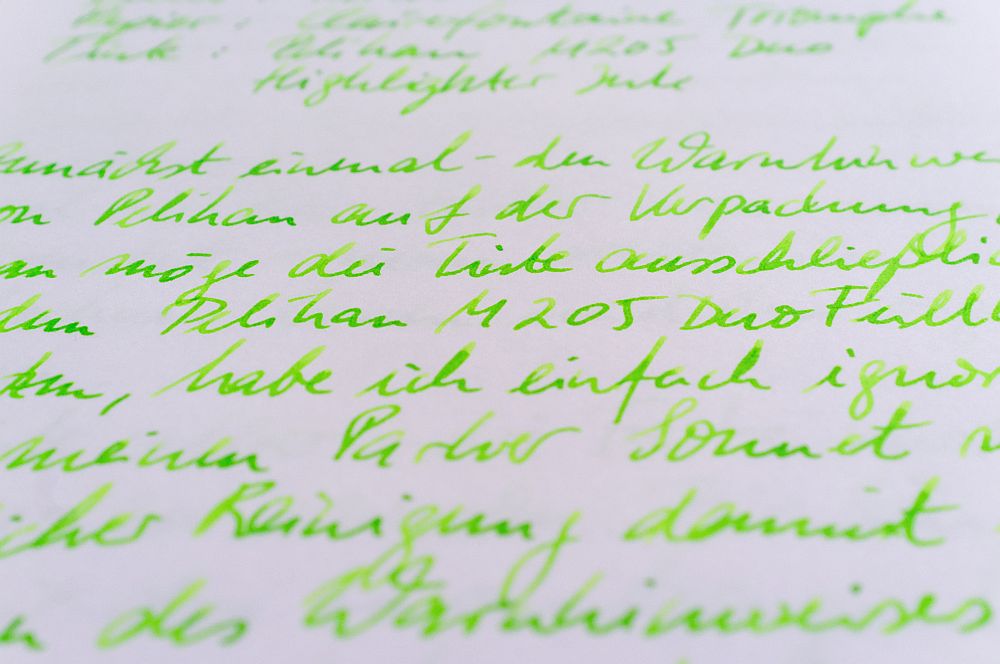 Papier : Clairefontaine Triomphe
Tinte : Pelikan M205 Duo
Highlighter Tinte
zunächst einmal - den Warnhinwe
on Pelikan auf der Verpackung,
an möge die Tinte ausschließlic
dem Pelikan M205 Duo Füll
ken, habe ich einfach ignor
meinen Parker Sonnet
licher Reinigung damit
n des Warnhinweises
da